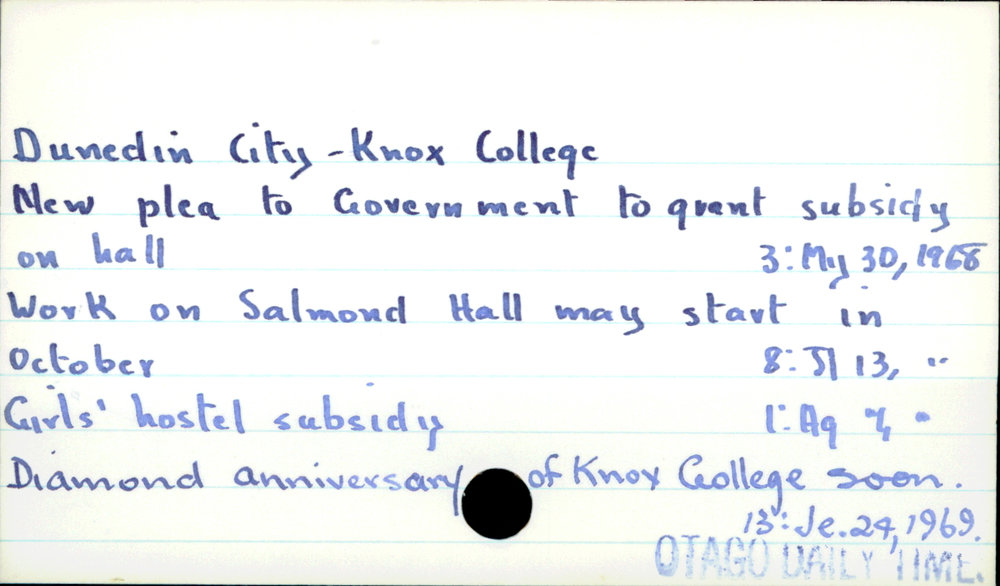 Dunedin City - Knox College
New plea to Government to grant subsidy
on hall 3: My 30, 1968
Work on Salmond Hall may start in
October 8: Jl 13, "
Girls' hostel subsidy 1: Ag "
Diamond anniversary of Knox College soon.
13: Je. 24, 1969.
OTAGO DAILY TIME.